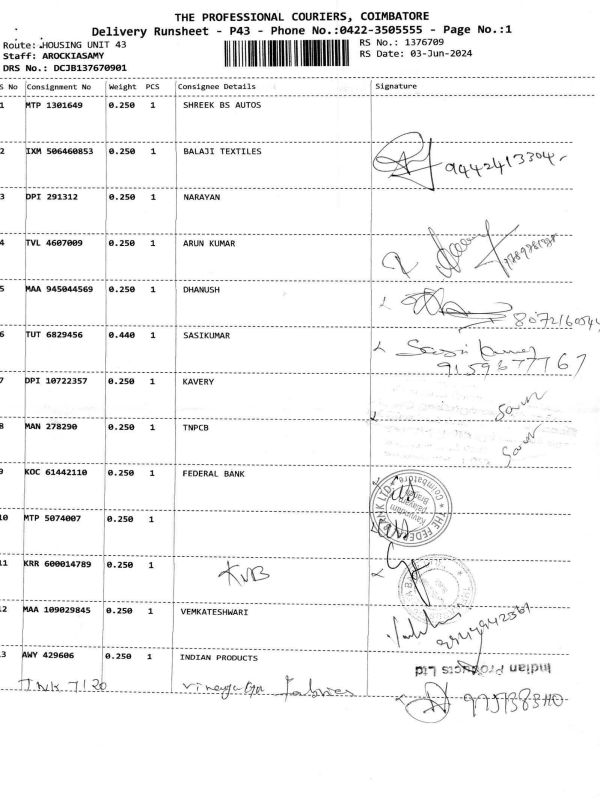 THE PROFESSIONAL COURIERS, COIMBATORE
Delivery Runsheet - P43 - Phone No.:0422-3505555 - Page No.:1
Route: HOUSING UNIT 43 RS No.: 1376709
Staff: AROCKIASAMY RS Date: 03-Jun-2024
DRS No.: DCJB137670901
S No Consignment No Weight PCS Consignee Details Signature
1 MTP 1301649 0.250 1 SHREEK BS AUTOS
2 IXM 506460853 0.250 1 BALAJI TEXTILES
9442413304
3 DPI 291312 0.250 1 NARAYAN
4 TVL 4607009 0.250 1 ARUN KUMAR
5 MAA 945044569 0.250 1 DHANUSH
6 TUT 6829456 0.440 1 SASIKUMAR
Sasi Kumar
9159677767
7 DPI 10722357 0.250 1 KAVERY
8 MAN 278290 0.250 1 TNPCB
9 KOC 61442110 0.250 1 FEDERAL BANK
THE FEDERAL BANK LTD
Coimbatore
10 MTP 5074007 0.250 1
11 KRR 600014789 0.250 1 KVB
12 MAA 109029845 0.250 1 VEMKATESHWARI
13 AWY 429606 0.250 1 INDIAN PRODUCTS
Indian Products Ltd
TNK 7120 Vinayaga Fabrics